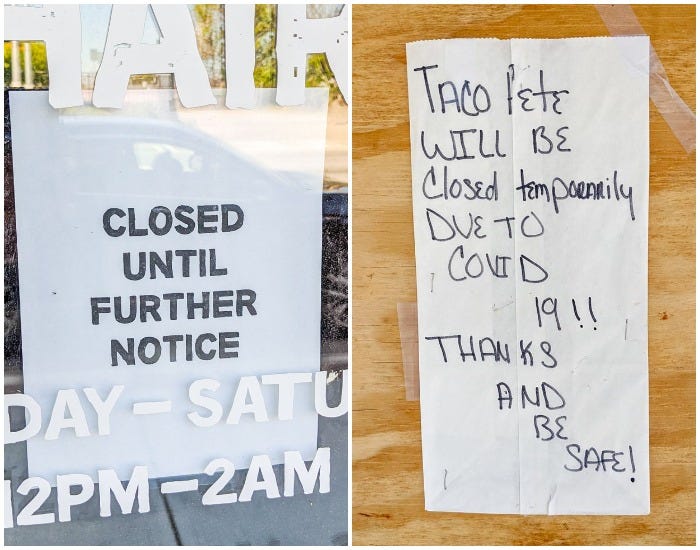 HAIR
CLOSED
UNTIL
FURTHER
NOTICE
DAY – SATU
12PM – 2AM
TACO PETE
WILL BE
Closed temporarily
DUE TO
COVID
19!!
THANKS
AND
BE
SAFE!